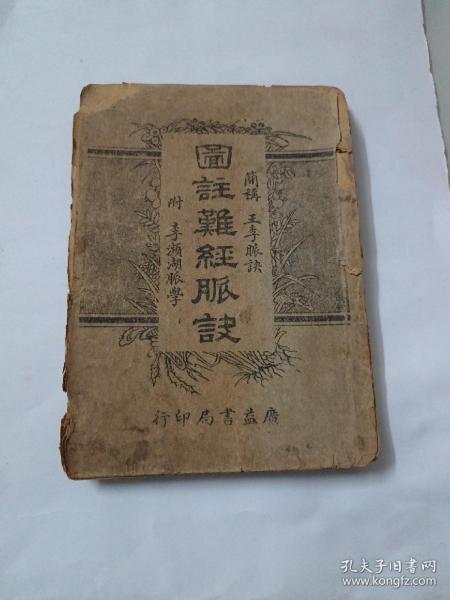 簡稱 王李脈訣
圖註難經脈訣
附 李瀕湖脈學
廣益書局印行
孔夫子旧书网
www.kongfz.com